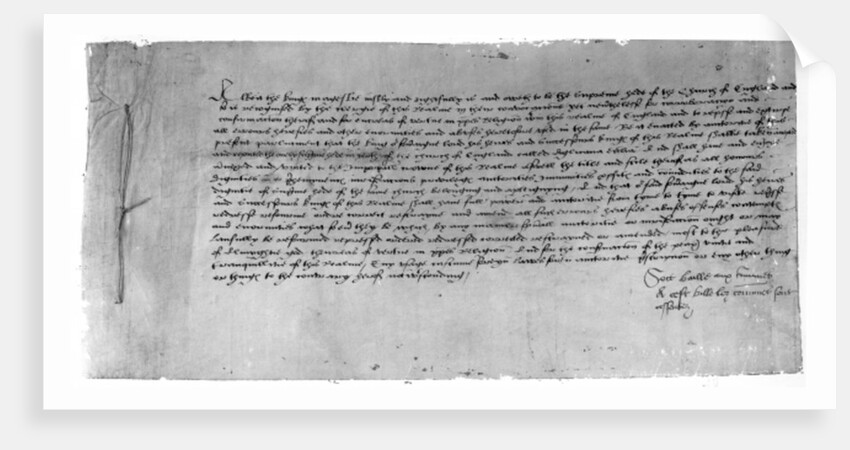 Albeit the kings mageste iustly and rightfully is and oweth to be the supreme hede of the Church of England and
so is recognised by the clergie of this Realme in theyr convocations yet neuertheles for corroboracion and
confirmation therof and for encreas of vertue in cristes Religion within this Realme of England and to repress and extirpe
all errours heresies and other enormities and abuses heretofore vsed in the same Be it enacted by auctorite of this
present parliament that the king our souereigne lorde his heires and successours kings of this Realme shalbe taken accepted
and reputed the only supreme hede in erth of the church of England called Anglicana Ecclesia And shall haue and enioye
annexed and vnited to the Imperiall crowne of this Realme aswell the title and stile therof as all honours
Dignities preemynences iurisdictions privileges auctorities immunities profitts and commodities to the said
dignitie of supreme hede of the same church belonging and apperteyning And that our said souereigne lorde his heires
and successours kings of this Realme shall haue full power and auctorite from tyme to tyme to visite represse
redresse reforme ordre correct restrayne and amende all such errours heresies abuses offences contempts
and enormities what so euer they be which by any maner spirituall auctorite or iurisdiction ought or may
lawfully be reformed repressed ordred redressed corrected restrayned or amended most to the pleasure
of almyghtie god thencreas of vertue in cristes Religion and for the conseruation of the peace vnite and
tranquillite of this Realme Any vsage custume foreyn lawes foreyn auctorite prescription or any other thing
or things to the contrary herof notwithstanding
Soit baille aux Communs
A ceste bille les communes sont
assentez